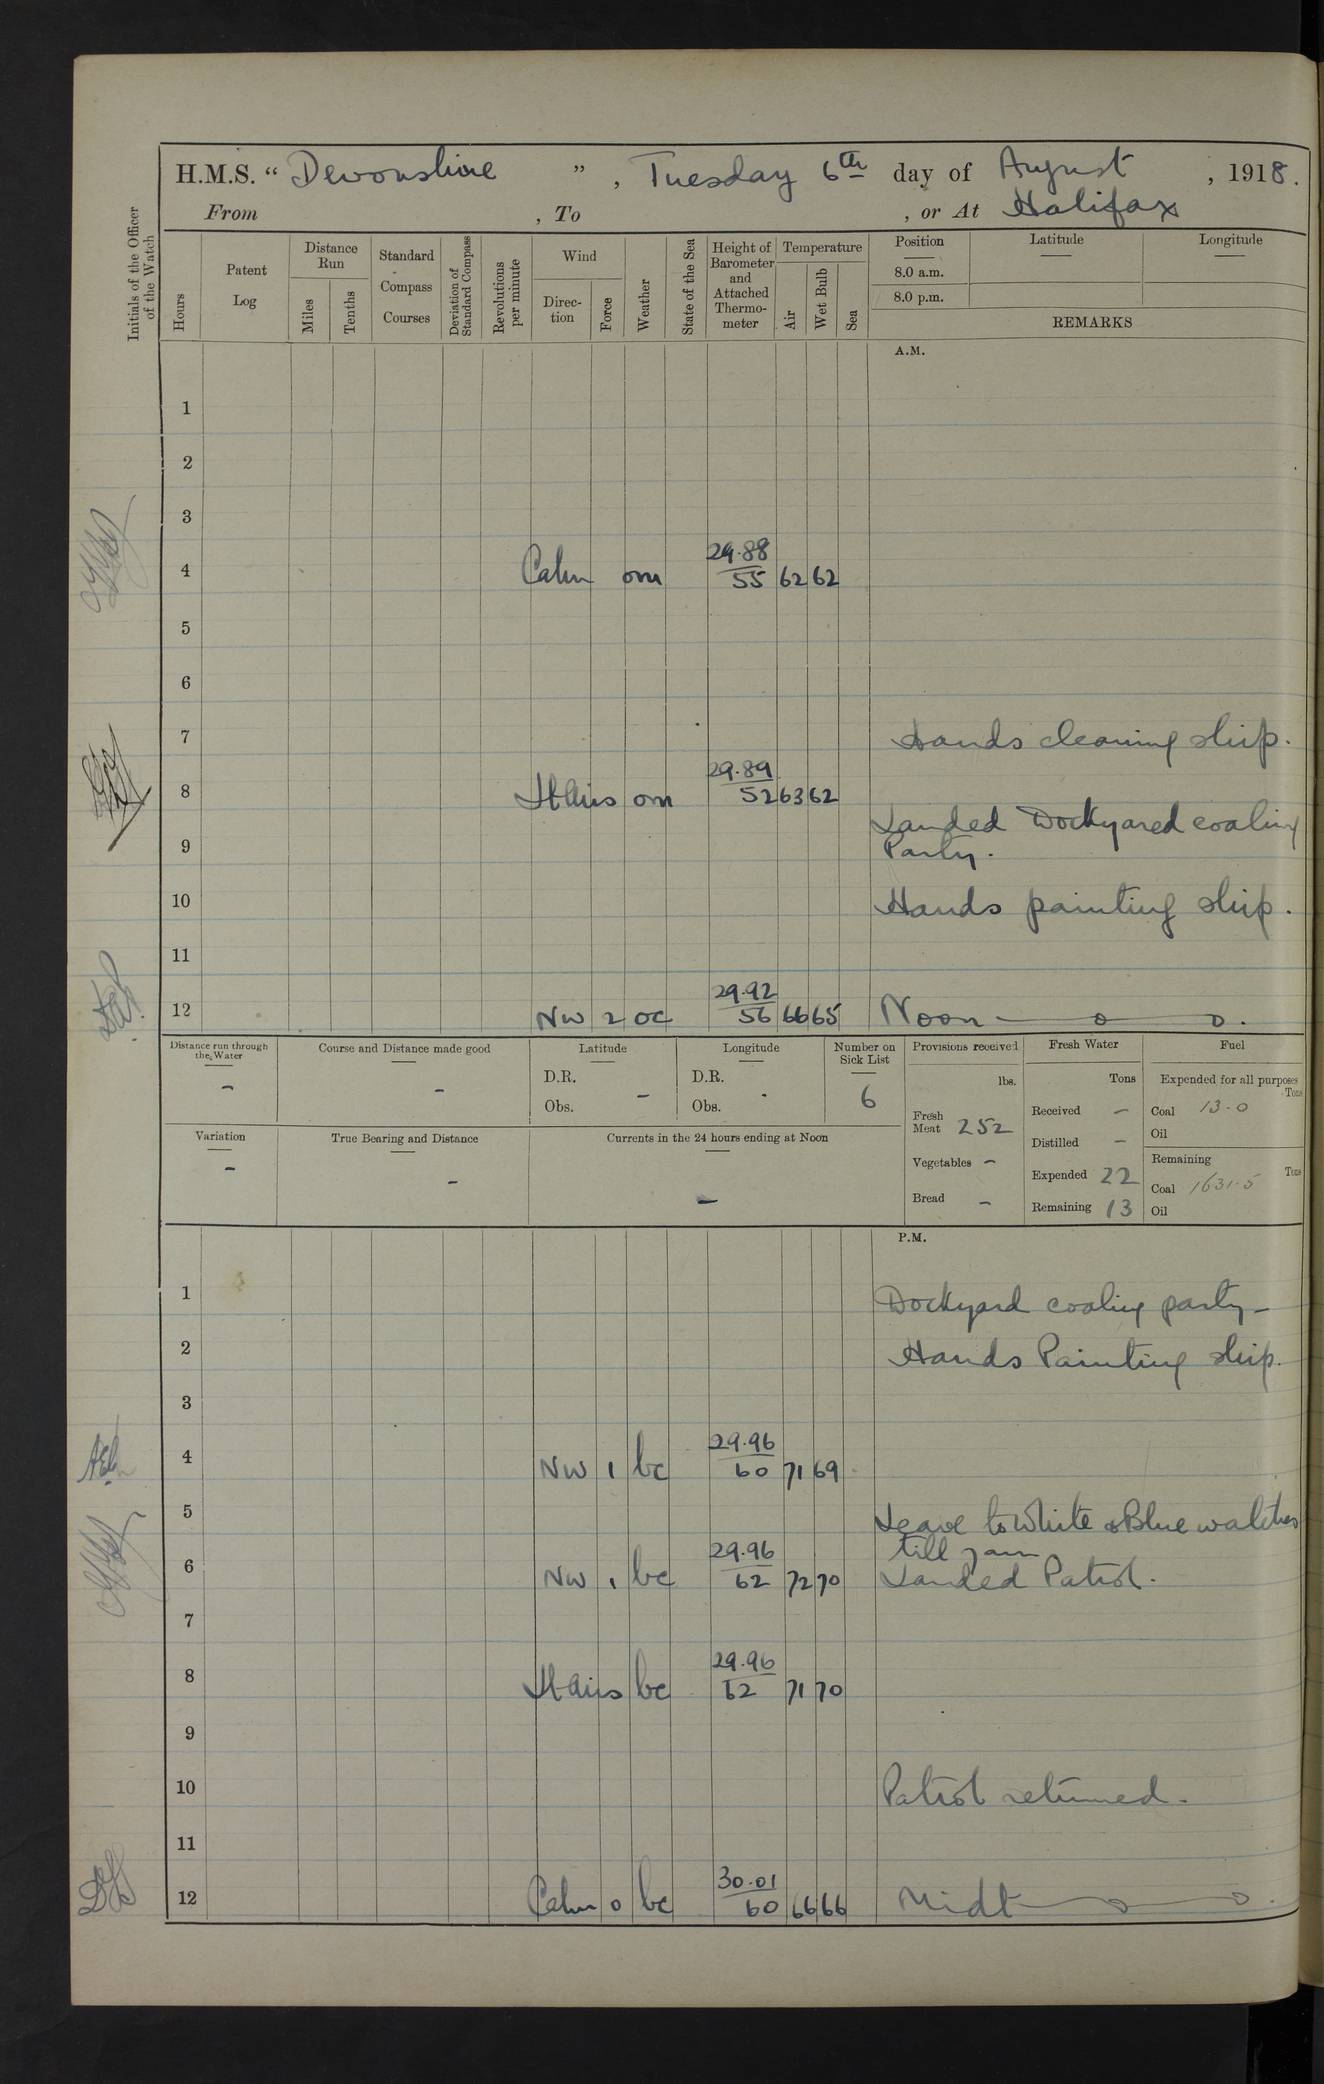 H.M.S. “ Devonshire ” , Tuesday 6th day of August , 1918.
From , To , or At Halifax
Initials of the Officer of the Watch
Hours
Patent Log
Distance Run
Miles
Tenths
Standard Compass Courses
Deviation of Standard Compass
Revolutions per minute
Wind
Direction
Force
Weather
State of the Sea
Height of Barometer and Attached Thermometer
Temperature
Air
Wet Bulb
Sea
Position
8.0 a.m.
8.0 p.m.
Latitude
Longitude
REMARKS
A.M.
1
2
3
4 Calm om 29.88 55 62 62
5
6
7 Hands cleaning ship.
8 Lt Airs om 29.89 52 63 62
Landed Dockyared coaling
9 Party.
10 Hands painting ship.
11
12 NW 2 oc 29.92 56 66 65 Noon
Distance run through the Water
-
Course and Distance made good
-
Latitude
D.R.
Obs. -
Longitude
D.R.
Obs. -
Number on Sick List
6
Variation
-
True Bearing and Distance
-
Currents in the 24 hours ending at Noon
-
Provisions received
lbs.
Fresh Meat 252
Vegetables -
Bread -
Fresh Water
Tons
Received -
Distilled -
Expended 22
Remaining 13
Fuel
Expended for all purposes
Tons
Coal 13.0
Oil
Remaining
Tons
Coal 1631.5
Oil
P.M.
1 Dockyard coaling party -
2 Hands Painting ship.
3
4 NW 1 bc 29.96 60 71 69
5 Leave to White & Blue watches
till 7am
6 NW 1 bc 29.96 62 72 70 Landed Patrol.
7
8 Lt Airs bc 29.96 62 71 70
9
10 Patrol returned.
11
12 Calm 0 bc 30.01 60 66 66 Midt